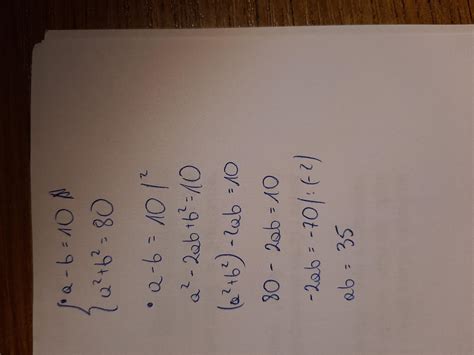 a-b = 10
a²+b² = 80
• a-b = 10 /²
a²-2ab+b² = 10
(a²+b²)-2ab = 10
80 - 2ab = 10
-2ab = -70 /:(-2)
ab = 35